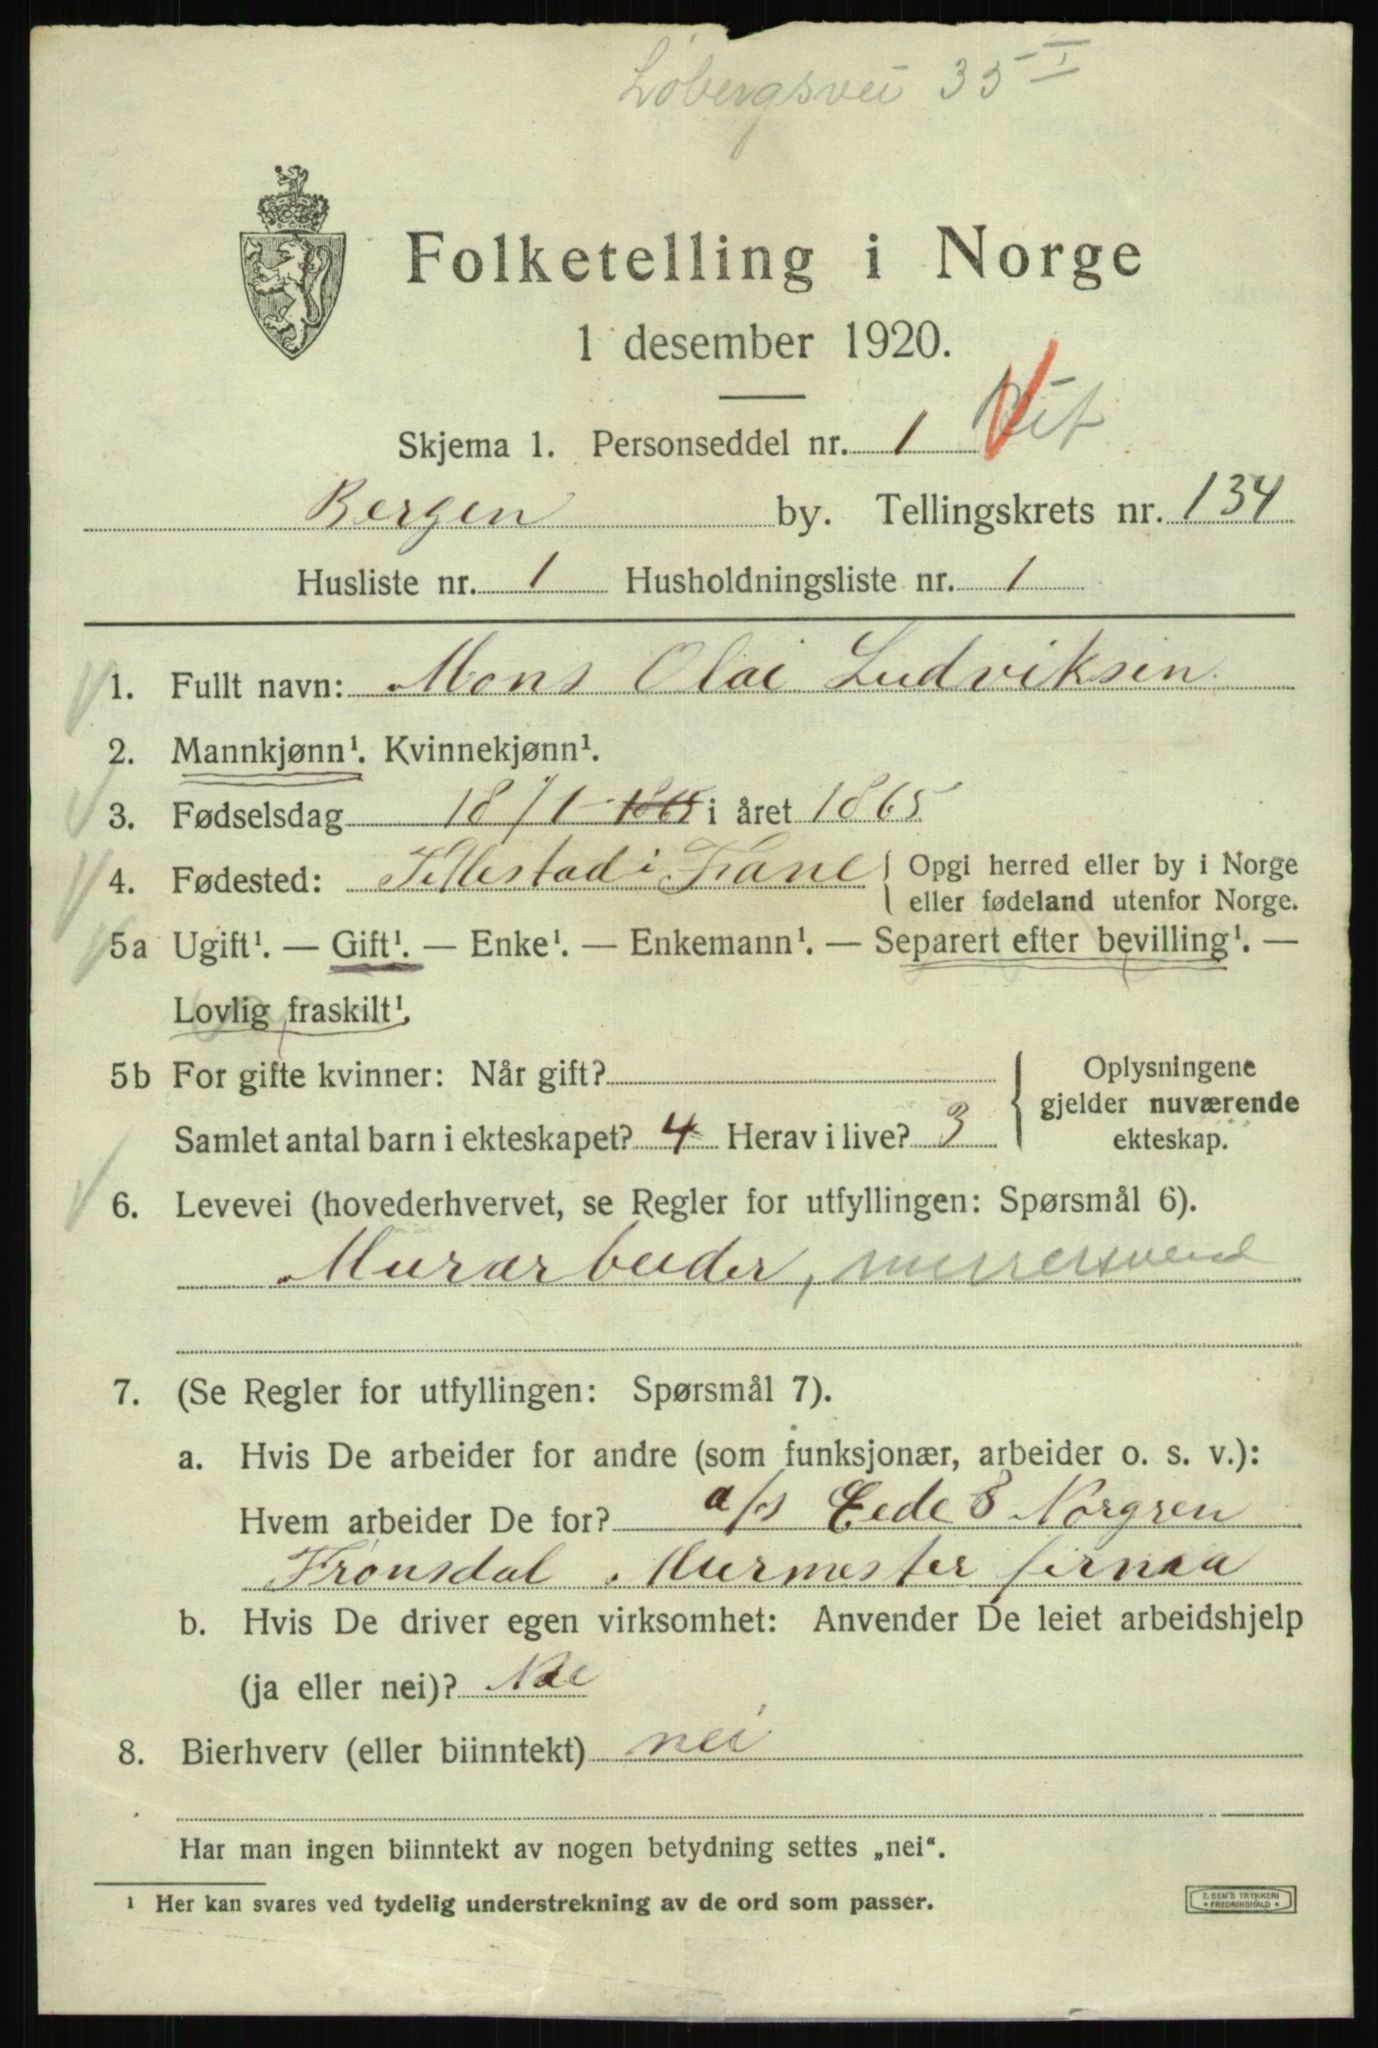 Løbergsvei 35 I
Folketelling i Norge
1 desember 1920.
Skjema 1. Personseddel nr. 1
Bergen by. Tellingskrets nr. 134
Husliste nr. 1 Husholdningsliste nr. 1
1. Fullt navn: Mons Olai Ludviksen
2. Mannkjønn¹. Kvinnekjønn¹.
3. Fødselsdag 18/1 1865 i året 1865
4. Fødested: i Opgi herred eller by i Norge
eller fødeland utenfor Norge.
5a Ugift¹. — Gift¹. — Enke¹. — Enkemann¹. — Separert efter bevilling¹. —
Lovlig fraskilt¹.
5b For gifte kvinner: Når gift?
Samlet antal barn i ekteskapet? 4 Herav i live? 3
Oplysningene
gjelder nuværende
ekteskap.
6. Levevei (hovederhvervet, se Regler for utfyllingen: Spørsmål 6).
Murarbeider, murersvend
7. (Se Regler for utfyllingen: Spørsmål 7).
a. Hvis De arbeider for andre (som funksjonær, arbeider o. s. v.):
Hvem arbeider De for? a/s Eede & Norgren
Fronsdal Murmester firma
b. Hvis De driver egen virksomhet: Anvender De leiet arbeidshjelp
(ja eller nei)? Nei
8. Bierhverv (eller biinntekt) nei
Har man ingen biinntekt av nogen betydning settes „nei“.
¹ Her kan svares ved tydelig understrekning av de ord som passer.
E. SEM'S TRYKKERI
* FREDRIKSHALD *